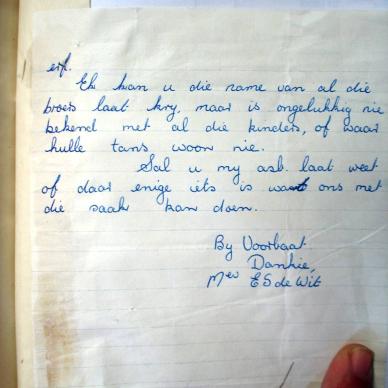 erf.
Ek kan u die name van al die
broers laat kry, maar is ongelukkig nie
bekend met al die kinders, of waar
hulle tans woon nie.
Sal u my asb. laat weet
of daar enige iets is wat ons met
die saak kan doen.
By Voorbaat
Dankie,
Mev E S de Wit